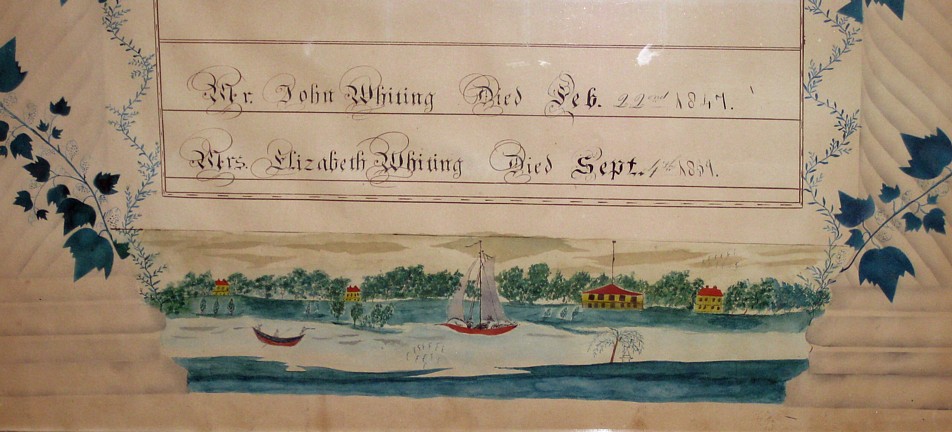 Mr. John Whiting Died Feb. 22nd 1847.
Mrs. Elizabeth Whiting Died Sept. 4th 1859.